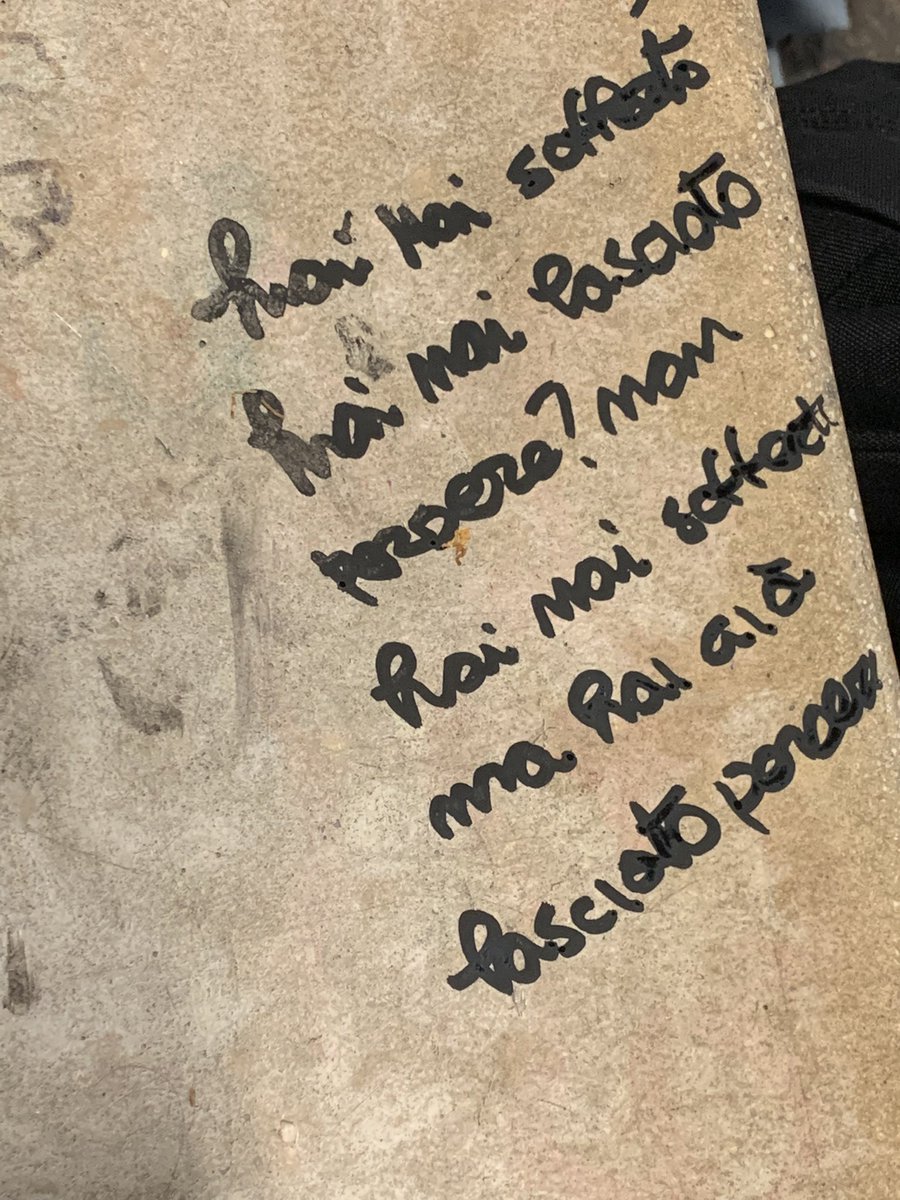 hai mai sofferto
hai mai lasciato
perdere? non
hai mai sofferto
ma hai già
lasciato perdere